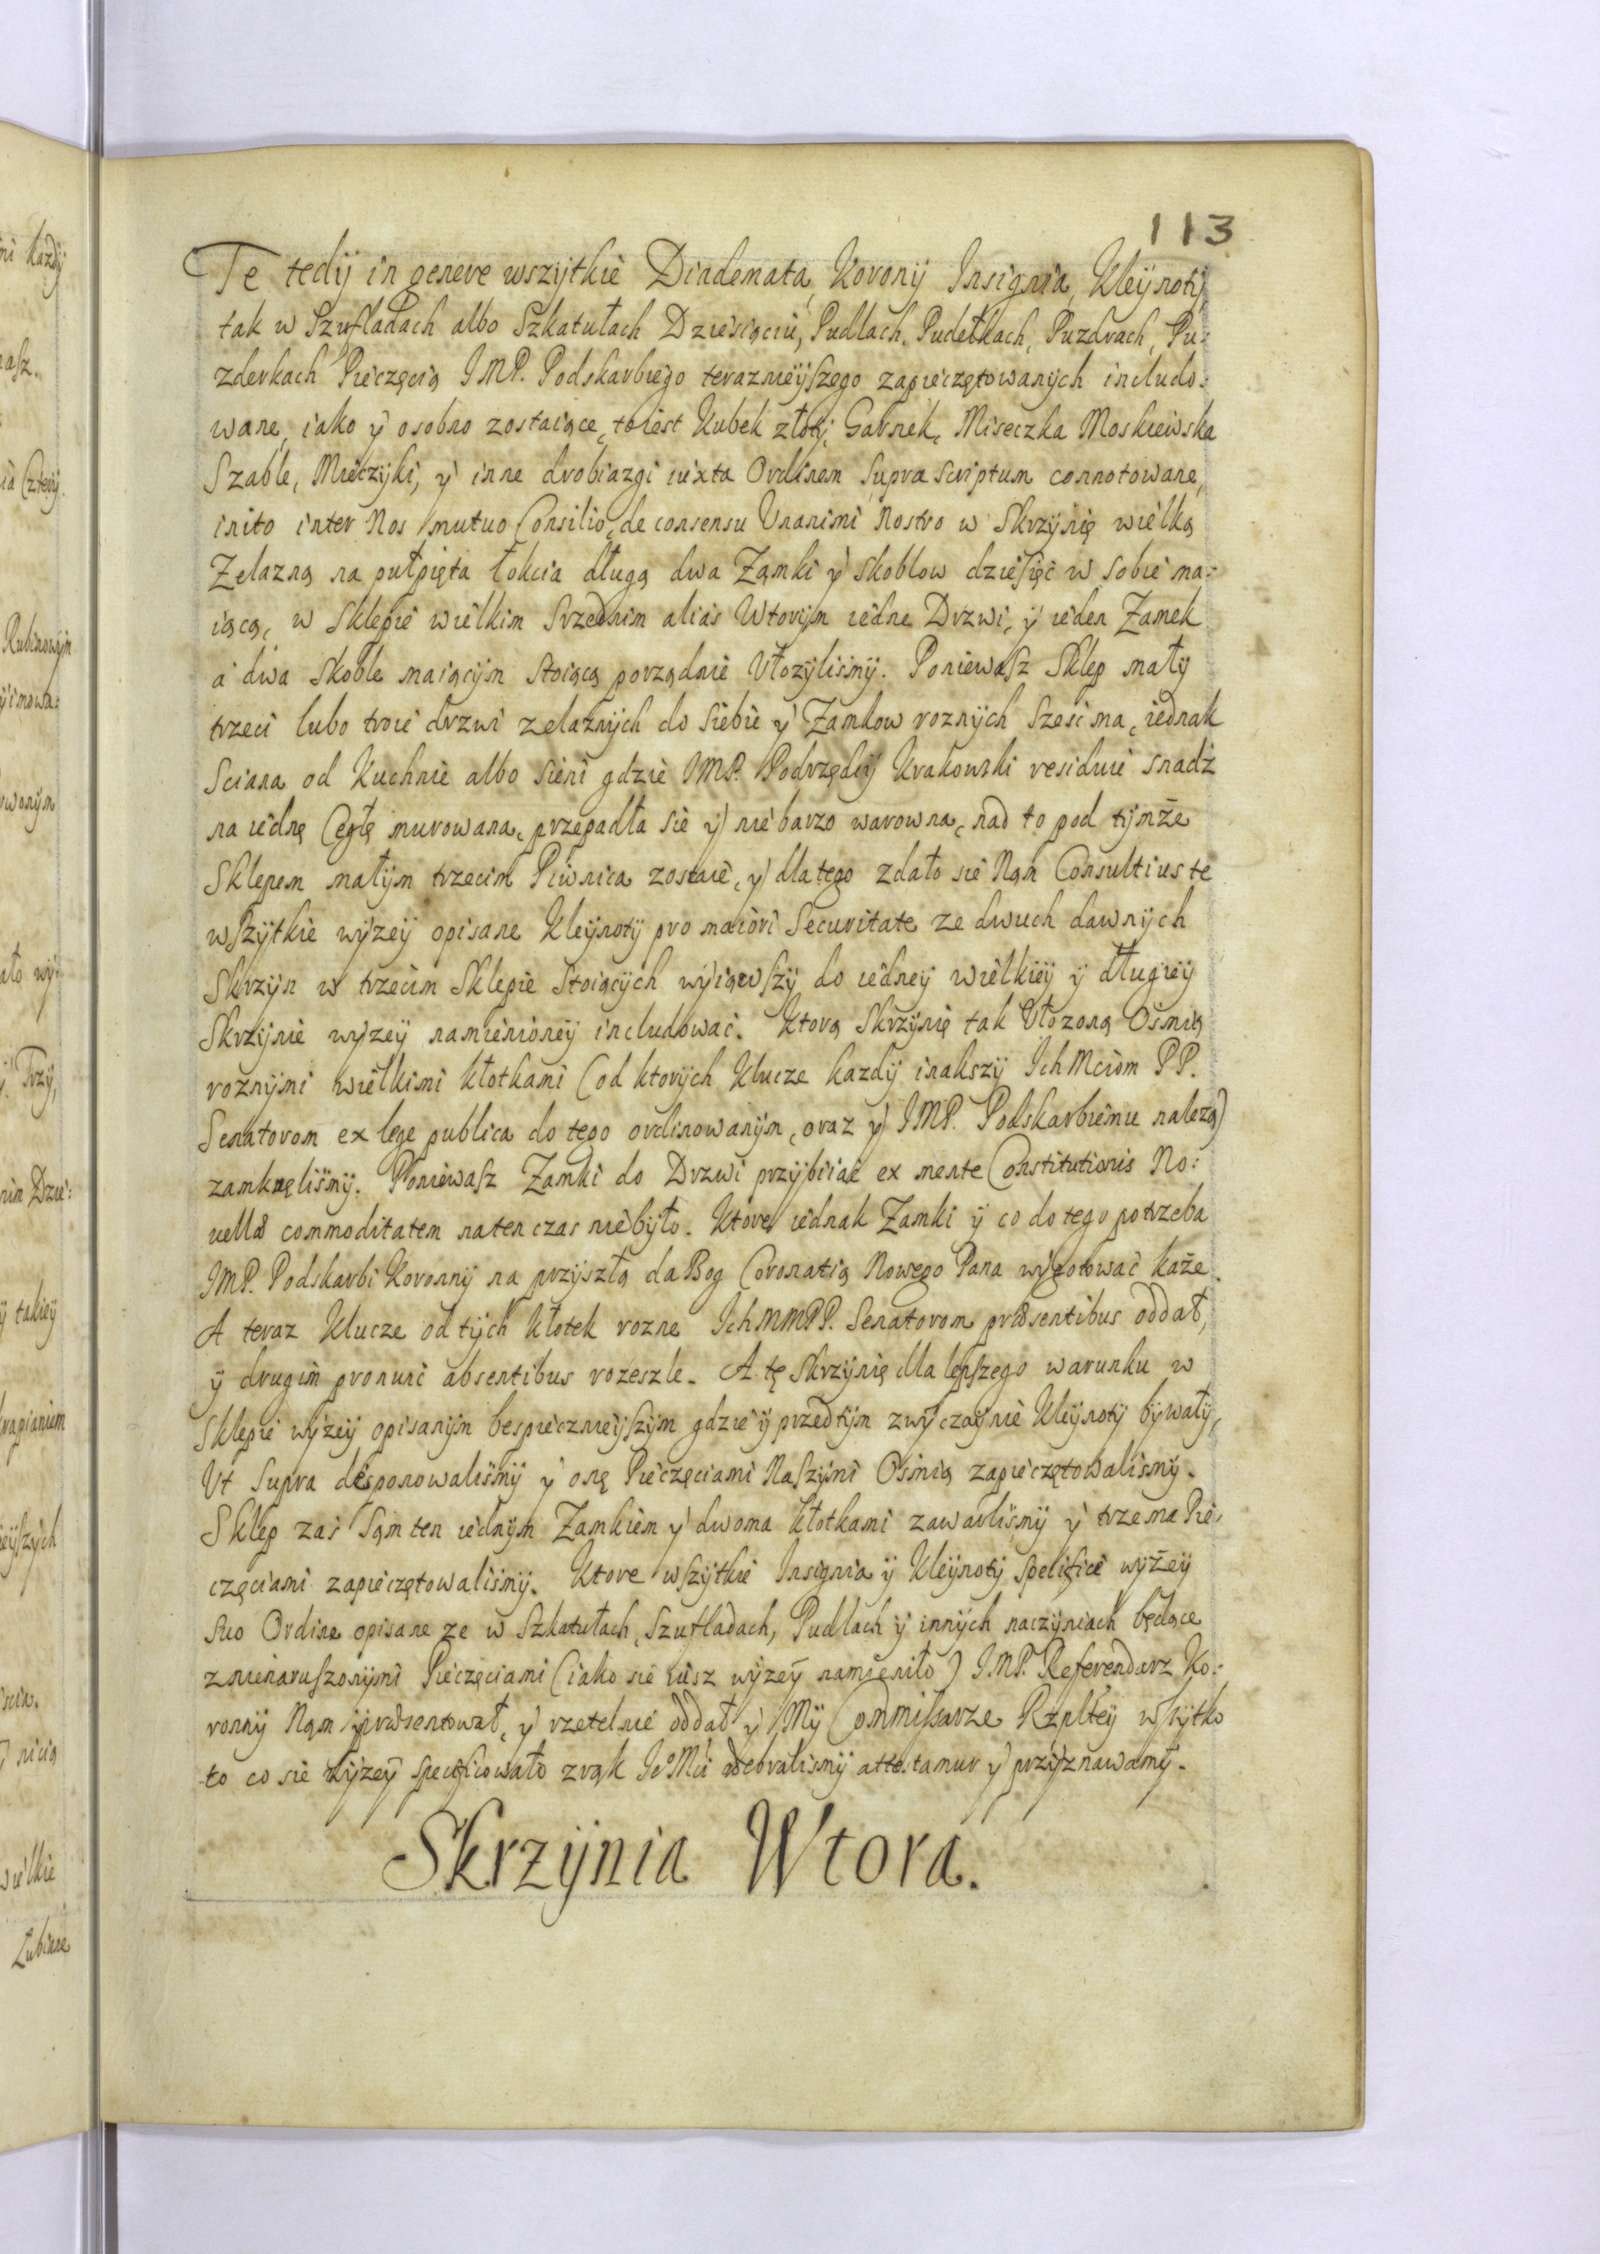 113
Te tedÿ in genere wszÿtkie Diademata, Koronÿ Insignia, Kleÿnotÿ
tak w Szufladach albo Szkatułach Dziesiąciu, Pudlach, Pudełkach, Puzdrach, Pu:
zderkach Pieczęcią JMP. Podskarbiego teraznieÿszego zapieczętowanÿch includo:
wane, iako ÿ osobno zostaiące, to iest Kubek złotÿ, Garnek, Miseczka Moskiewska
Szable, Mieczÿki, ÿ inne drobiazgi iuxta Ordinem supra scriptum connotowane,
inito inter Nos mutuo Consilio, de consensu Unanimi Nostro w Skrzÿnię wielką
Zelazną na pułpięta łokcia długą dwa Zamki ÿ skoblow dziesięć w sobie ma:
iącą, w Sklepie wielkim srzednim alias Wtorÿm iedne Drzwi, ÿ ieden Zamek
a dwa skoble maiącÿm stoiącą porządnie Włozÿlismÿ. Poniewasz Sklep małÿ
trzeci lubo troie drzwi zelaznÿch do siebie ÿ Zamkow roznÿch szesc ma, iednak
Sciana od Kuchnie albo sieni gdzie JMP. Podrzędÿ Krakowski residuie snadź
na iednę Cegłę murowana, przepadła sie ÿ nie barzo warowna, nad to pod tÿmże
Sklepem małÿm trzecim Piwnica zostaie, ÿ dla tego zdało sie Nam Consultius te
wszÿtkie wÿzeÿ opisane Kleÿnotÿ pro maiori Securitate ze dwuch dawnÿch
Skrzÿn w trzecim Sklepie stoiącÿch wÿiąwszÿ do iedneÿ wielkieÿ ÿ długieÿ
Skrzÿnie wÿzeÿ namienioneÿ includować. Ktorą Skrzÿnię tak Włozoną Osmią
roznÿmi wielkimi kłotkami (od ktorÿch Klucze kazdÿ inakszÿ Ich Mciom PP.
Senatorom ex lege publica do tego ordinowanÿm, oraz ÿ JMP. Podskarbiemu nalezą)
zamknęlismÿ. Poniewasz Zamki do Drzwi przÿbiiać ex mente Constitutionis No:
vellæ commoditatem naten czas niebÿło. Ktore iednak Zamki ÿ co do tego potrzeba
JMP. Podskarbi Koronnÿ na przÿszłą da Bog Coronatią Nowego Pana wÿgotować każe.
A teraz Klucze od tÿch Kłotek rozne Ich MMPP. Senatorom præsentibus oddał,
ÿ drugim pronunc absentibus rozeszle. A tę Skrzÿnię dla lepszego warunku w
Sklepie wÿzeÿ opisanÿm bespiecznieÿszÿm gdzie ÿ przedtÿm zwÿczaÿnie Kleÿnotÿ bÿwałÿ,
Ut supra disponowalismÿ ÿ onę Pieczęciami Naszÿmi Osmią zapieczętowalismÿ.
Sklep zas sam ten iednÿm Zamkiem ÿ dwoma kłotkami zawarlismÿ ÿ trzema Pie:
częciami zapieczętowalismÿ. Ktore wszÿtkie Insignia ÿ Kleÿnotÿ specifice wÿżeÿ
suo Ordine opisane ze w Szkatułach, Szufladach, Pudlach ÿ innÿch naczÿniach będące
z nienaruszonÿmi Pieczęciami (iako sie iusz wÿzeÿ namieniło) JMP. Referendarz Ko:
ronnÿ Nam præsentował, ÿ rzetelnie oddał ÿ Mÿ Commissarze Rzpłteÿ wszÿtko
to co sie wÿzeÿ specificowało z rąk Jeo Mci odebralismÿ attestamur ÿ przÿznawamÿ.
Skrzÿnia Wtora.